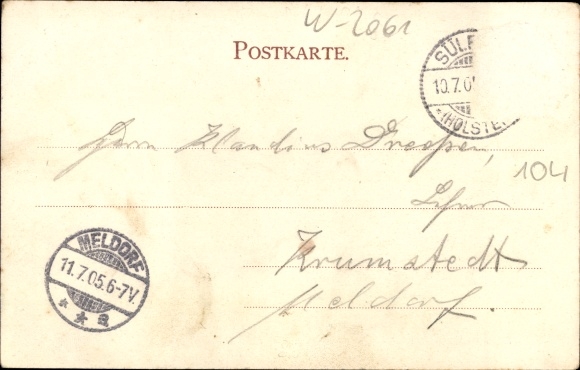 W-2061
POSTKARTE.
SÜL
10.7.0
(HOLSTE
Herrn Klaudius Dreeßen,
104
MELDORF
11.7.05.6-7V.
* * a
Krumstedt
Meldorf.